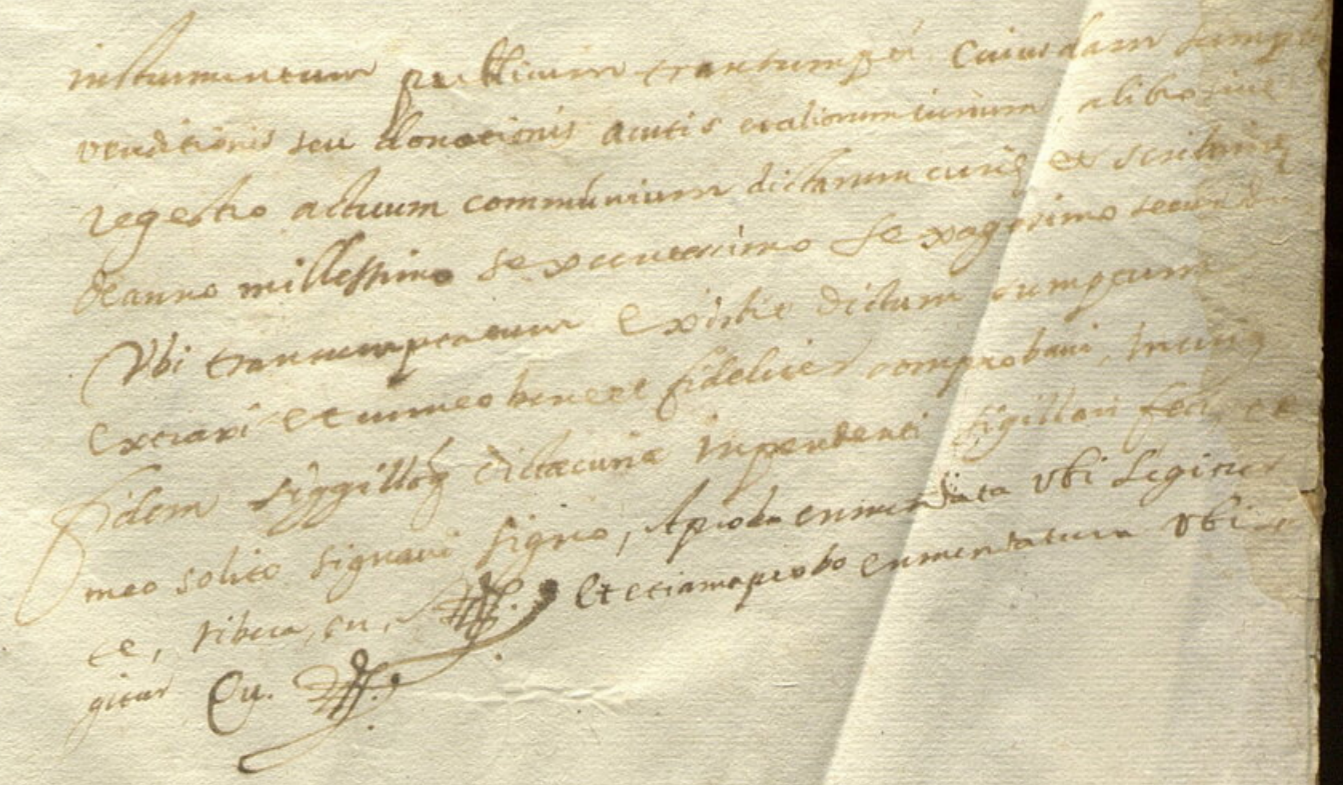 instrumentum publicum cuiusdam
venditionis seu donationis acutis et aliorum iurium a libro sive
regestro actuum communium dictarum curie et scribanie
de anno millessimo sexcentessimo sexagesimo secundo
Vbi existit dictum sumptum
extraxi et cum eo bene et fideliter comprobavi, In cuius
fidem siggillo dicte curie Inpendenti sigillari feci, et
meo solito signavi signo, Aprobo enmendata vbi Legitur
te, ribera, en,
Et etiam aprobo enmendatum vbi Le
gitur Cu.